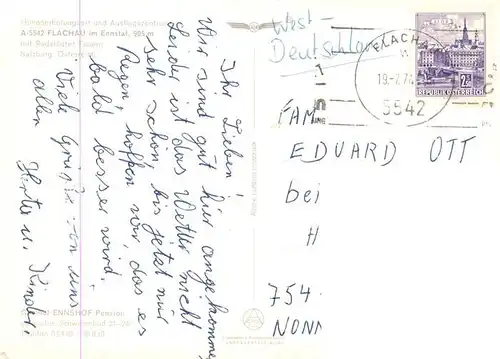 Höhenerholungsort und Ausflugszentrum
A-5542 FLACHAU im Ennstal, 925 m
mit Radstädter Tauern
Salzburg Österreich
Ihr Lieben,
Wir sind gut hier angekommen
Leider ist das Wetter nicht
sehr schön bis jetzt nur
Regen, hoffen wir, das es
bald besser wird.
Viele Grüße von uns
allen
u. Kinder.
ENNSHOF Pension
West-
Deutschland
FLACHAU
5542
2S
REPUBLIK ÖSTERREICH
FAM
EDUARD OTT
bei
H
754
NONN